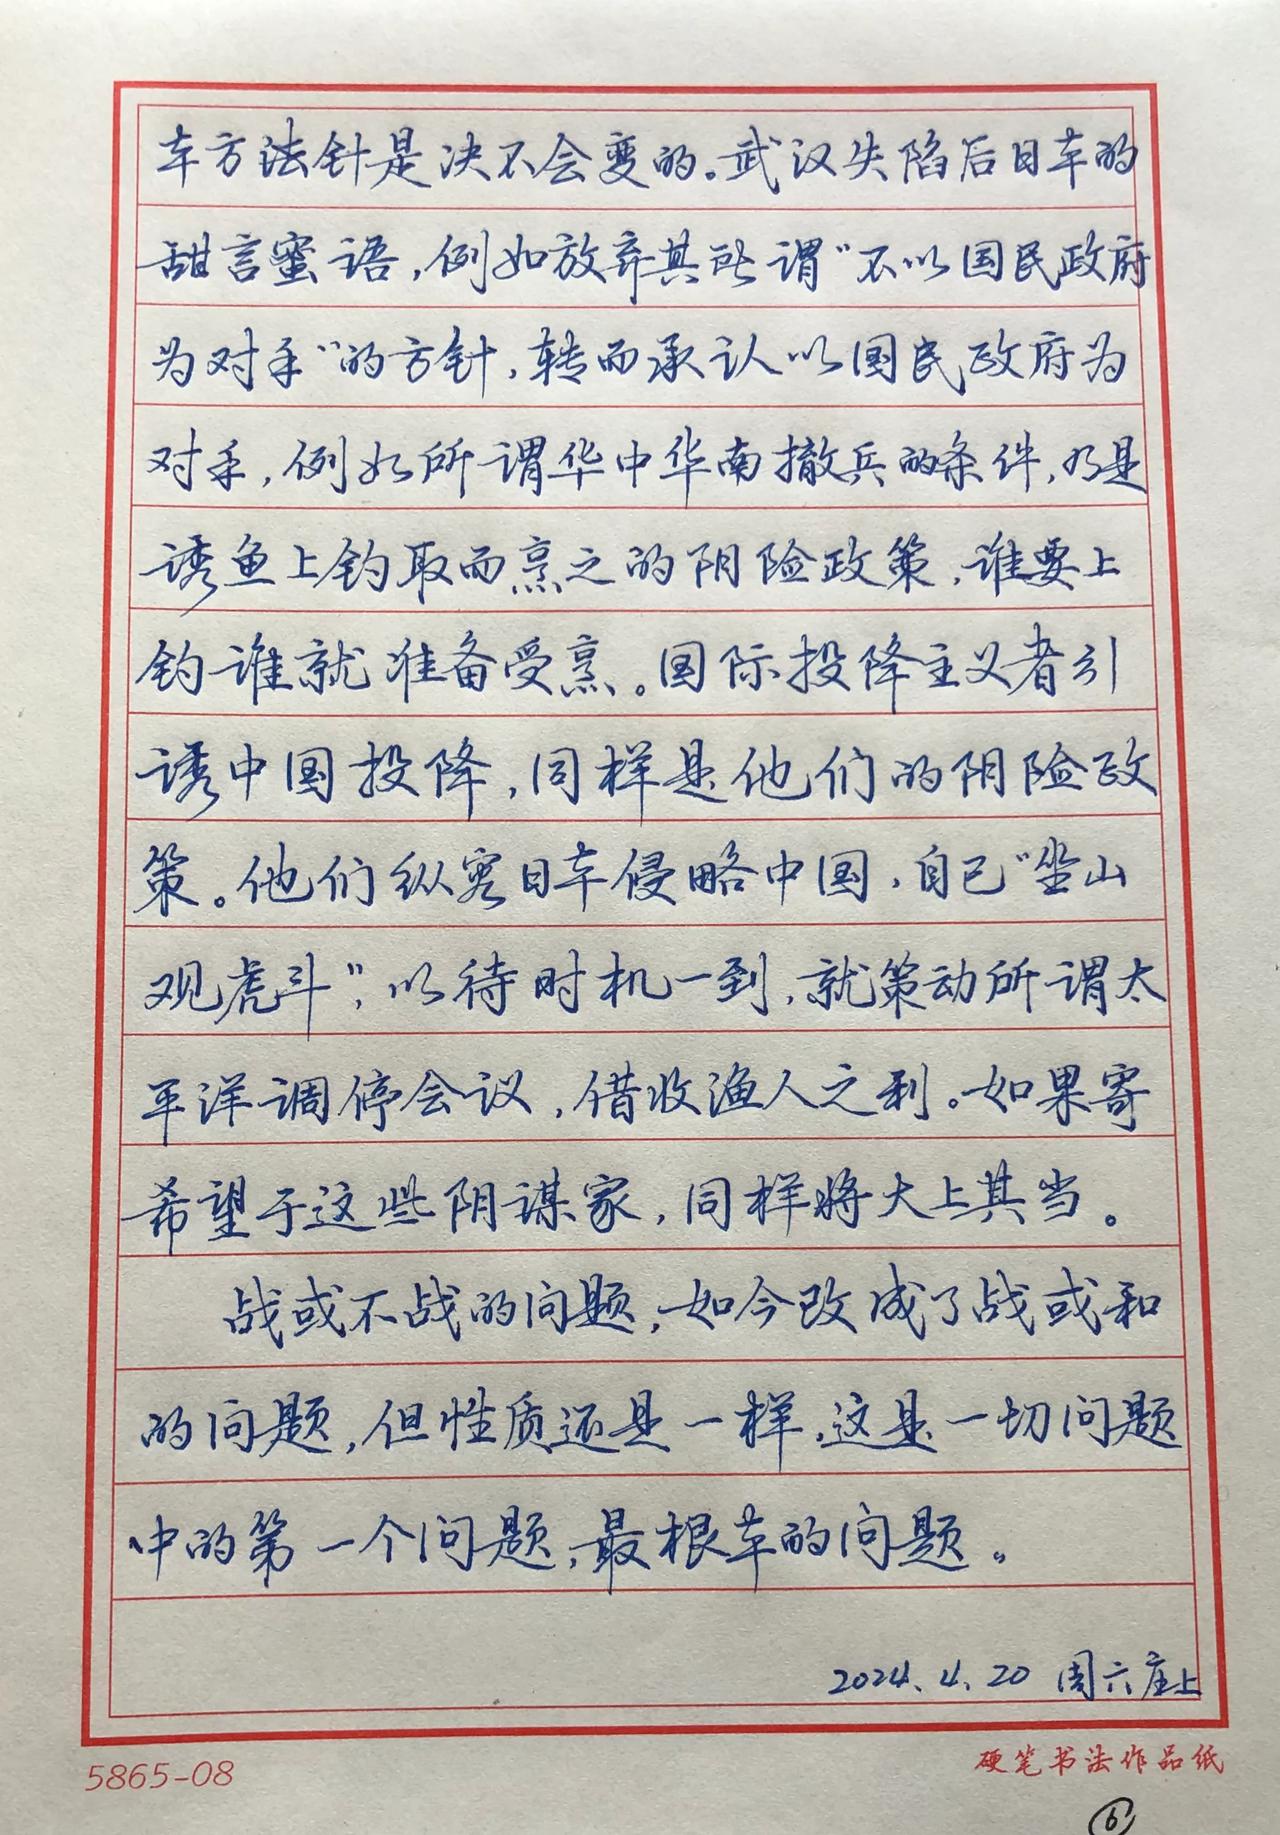 本方法针是决不会变的。武汉失陷后日本的
甜言蜜语,例如放弃其所谓“不以国民政府
为对手”的方针,转而承认以国民政府为
对手,例如所谓华中华南撤兵的条件,乃是
诱鱼上钓取而烹之的阴险政策,谁要上
钓谁就准备受烹。国际投降主义者引
诱中国投降,同样是他们的阴险政
策。他们纵容日本侵略中国,自己“坐山
观虎斗”,以待时机一到,就策动所谓太
平洋调停会议,借收渔人之利。如果寄
希望于这些阴谋家,同样将大上其当。
战或不战的问题,如今改成了战或和
的问题,但性质还是一样,这是一切问题
中的第一个问题,最根本的问题。
2024.4.20 周六
5865-08
硬笔书法作品纸
6